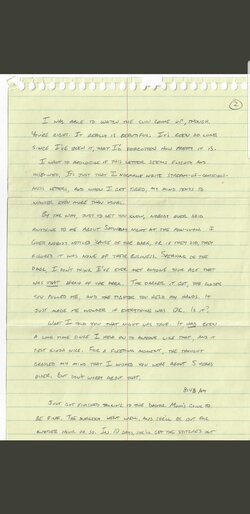 2
I was able to watch the sun come up, though.
You're right. It really is beautiful. It's been so long
since I've seen it, that I'd forgotten how pretty it is.
I want to apologize if this letter seems flighty and
disjointed. It's just that I normally write stream-of-conscious-
ness letters, and when I get tired, my mind tends to
wander even more than usual.
By the way, just to let you know, nobody ever said
anything to me about Saturday night at the fountain. I
guess nobody noticed 'cause of the dark, or if they did, they
figured it was none of their business. Speaking of the
dark, I don't think I've ever met anyone your age that
was that afraid of the dark. The darker it got, the closer
you pulled me, and the tighter you held my hands. It
just made me wonder if everything was OK. Is it?
What I told you that night was true. It had been
a long time since I hung on to anyone like that, and it
felt kinda nice. For a fleeting moment, the thought
crossed my mind that I wished you were about 5 years
older. But don't worry about that.
8:48 AM
Just got finished talking to the doctor. Mom's gonna to
be fine. The surgery went well, and she'll be out for
another hour or so. In 10 days, she'll get the stitches out